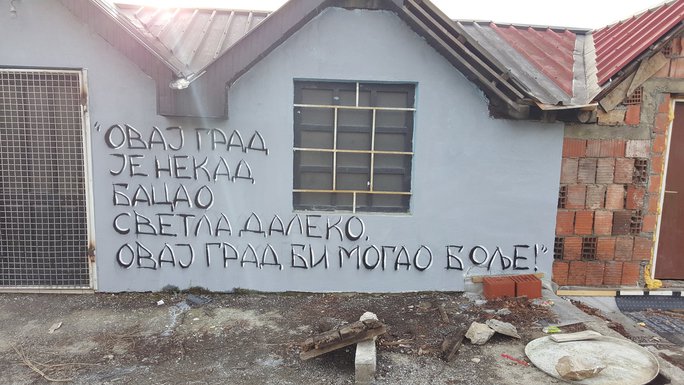 "ОВАЈ ГРАД
ЈЕ НЕКАД
БАЦАО
СВЕТЛА ДАЛЕКО,
ОВАЈ ГРАД БИ МОГАО БОЉЕ!"